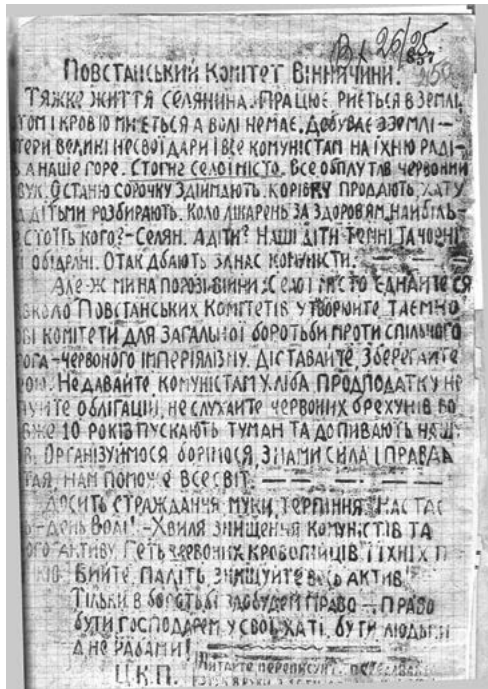 Вх 26/25
837
Повстанський Комітет Вінничини.
Тяжке життя селянина. Працює, риється в землі,
том і кров'ю миється а волі немає. Добуває з землі-
тери великі несвої дари і все комуністам на їхню раді-
а наше горе. Стогне село і місто. Все обплутав червоний
вук. Останю сорочку здіймають, корівку продають, хату
дітьми розбирають. Коло лікарень за здоров'ям найбіль-
стоїть кого?-Селян. А діти? Наші діти темні та чорні
обідрані. Отак дбають за нас комуністи.
Але-ж ми на порозі війни. Село і місто єднайтеся
вколо Повстанських Комітетів утворюйте таємно
ові комітети для загальної боротьби проти спільного
рога-червоного імперіялізму. Діставайте, зберегайте
рою. Недавайте комуністам хліба продподатку не
пуйте облігацій, неслухайте червоних брехунів бо
вже 10 років пускають туман та допивають нашу
в. Організуймося борімося, з нами сила і правда
тая, нам поможе всесвіт.
Досить страждання муки, терпіння. Настас
-день волі! -Хвиля знищення комуністів та
ого активу. Геть червоних кровопийців і їхніх п
Бийте, паліть знищуйте весь актив!
Тільки в боротьбі здобудем право - право
бути господарем у своїй хаті, бути людьми
а не рабами!
Ц.К.П.
Читайте переписуйте